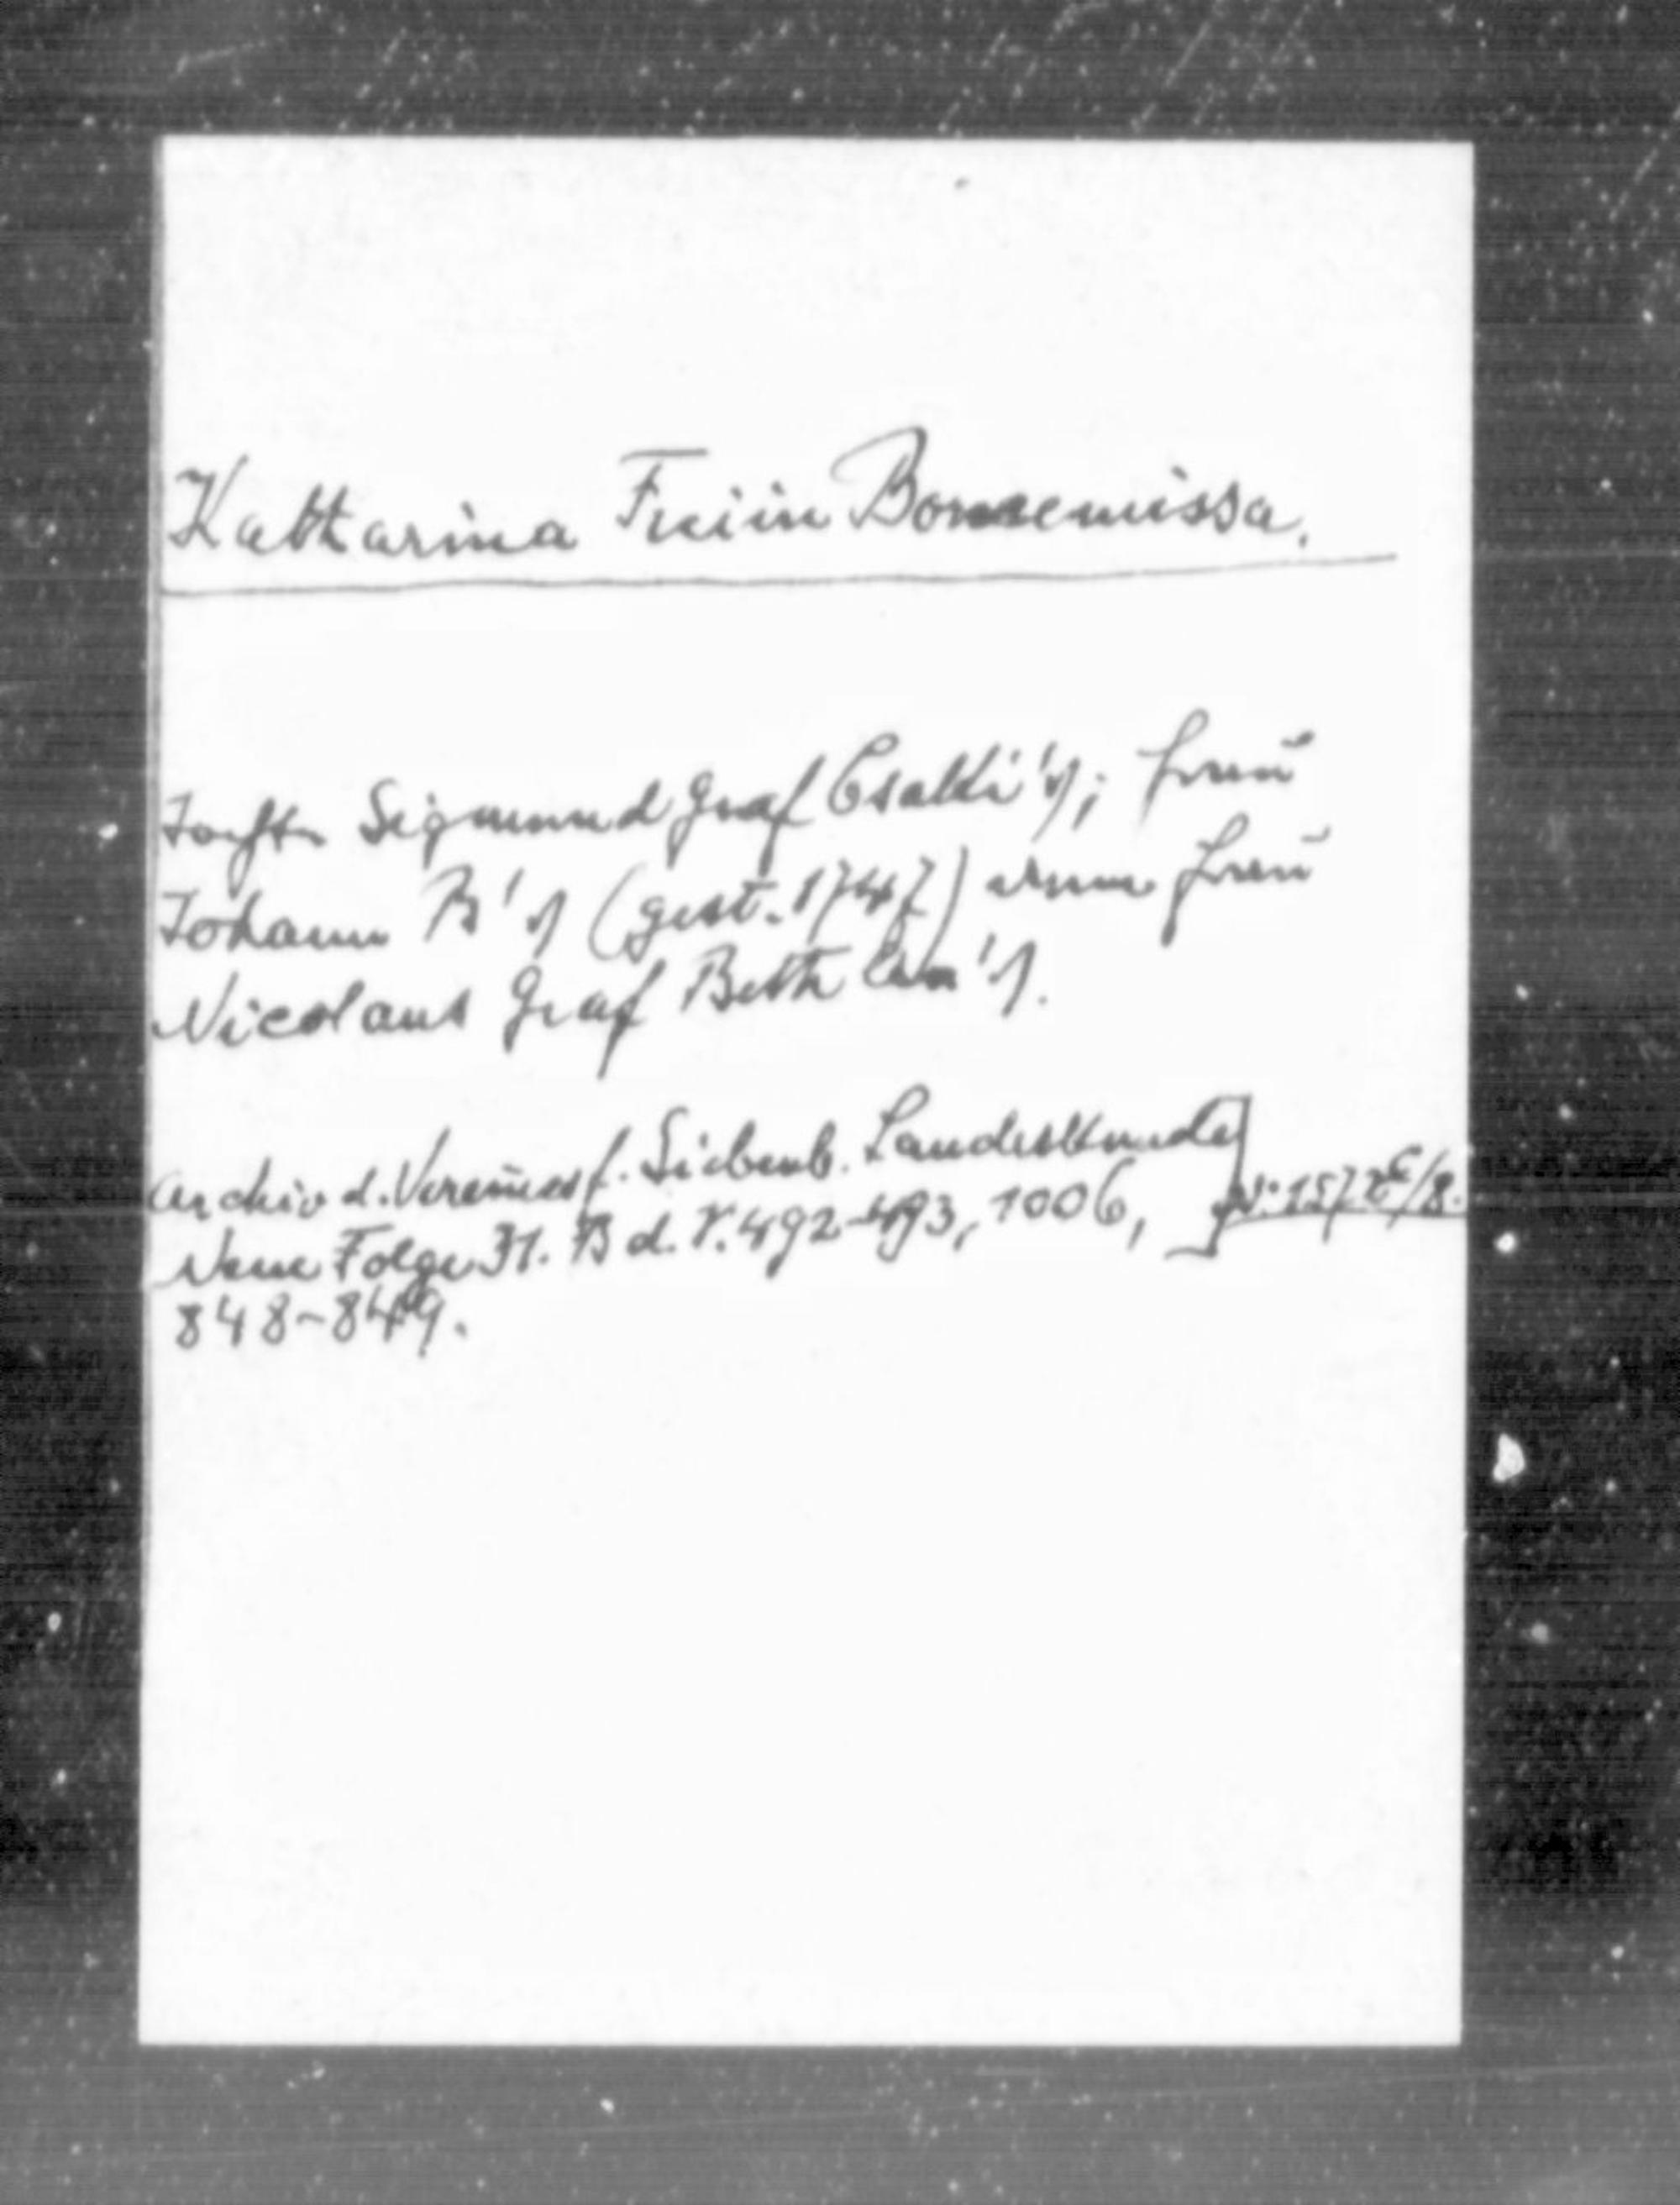 Katharina Freiin Bornemissa.
Tochter Sigmund Graf Csakki's; Frau
Johann B's (gest. 1747) dann Frau
Nicolaus Graf Bethlem's.
Archiv d. Vereines f. Siebenb. Landeskunde
Neue Folge 31. Bd. S. 492-493, 1006,
848-849.